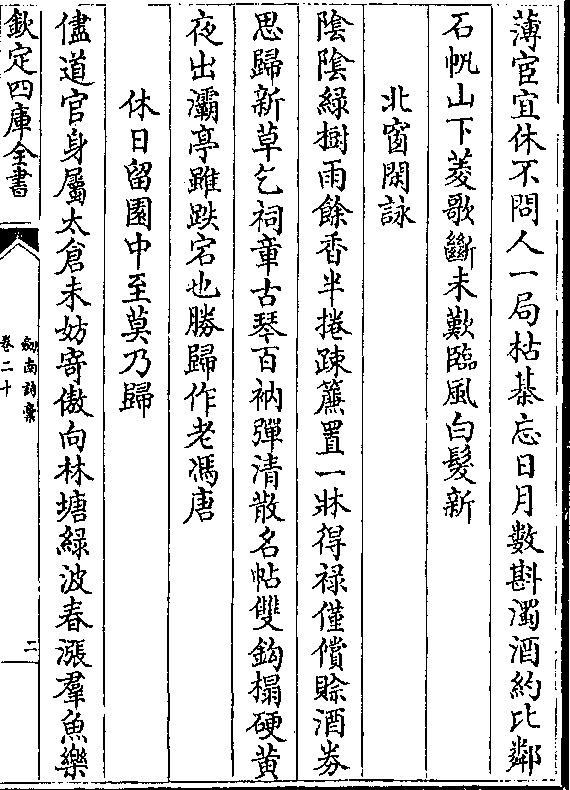 薄宦宜休不問人一局枯棊忘日月數斟濁酒約比鄰
石帆山下菱歌斷未歎臨風白髮新
北窗閑詠
陰陰綠樹雨餘香半捲疎簾置一牀得祿僅償賒酒券
思歸新草乞祠章古琴百衲彈清散名帖雙鈎搨硬黃
夜出灞亭雖跌宕也勝歸作老馮唐
休日留園中至莫乃歸
儘道官身屬太倉未妨寄傲向林塘綠波春漲羣魚樂
欽定四庫全書
劍南詩稾
卷二十
二